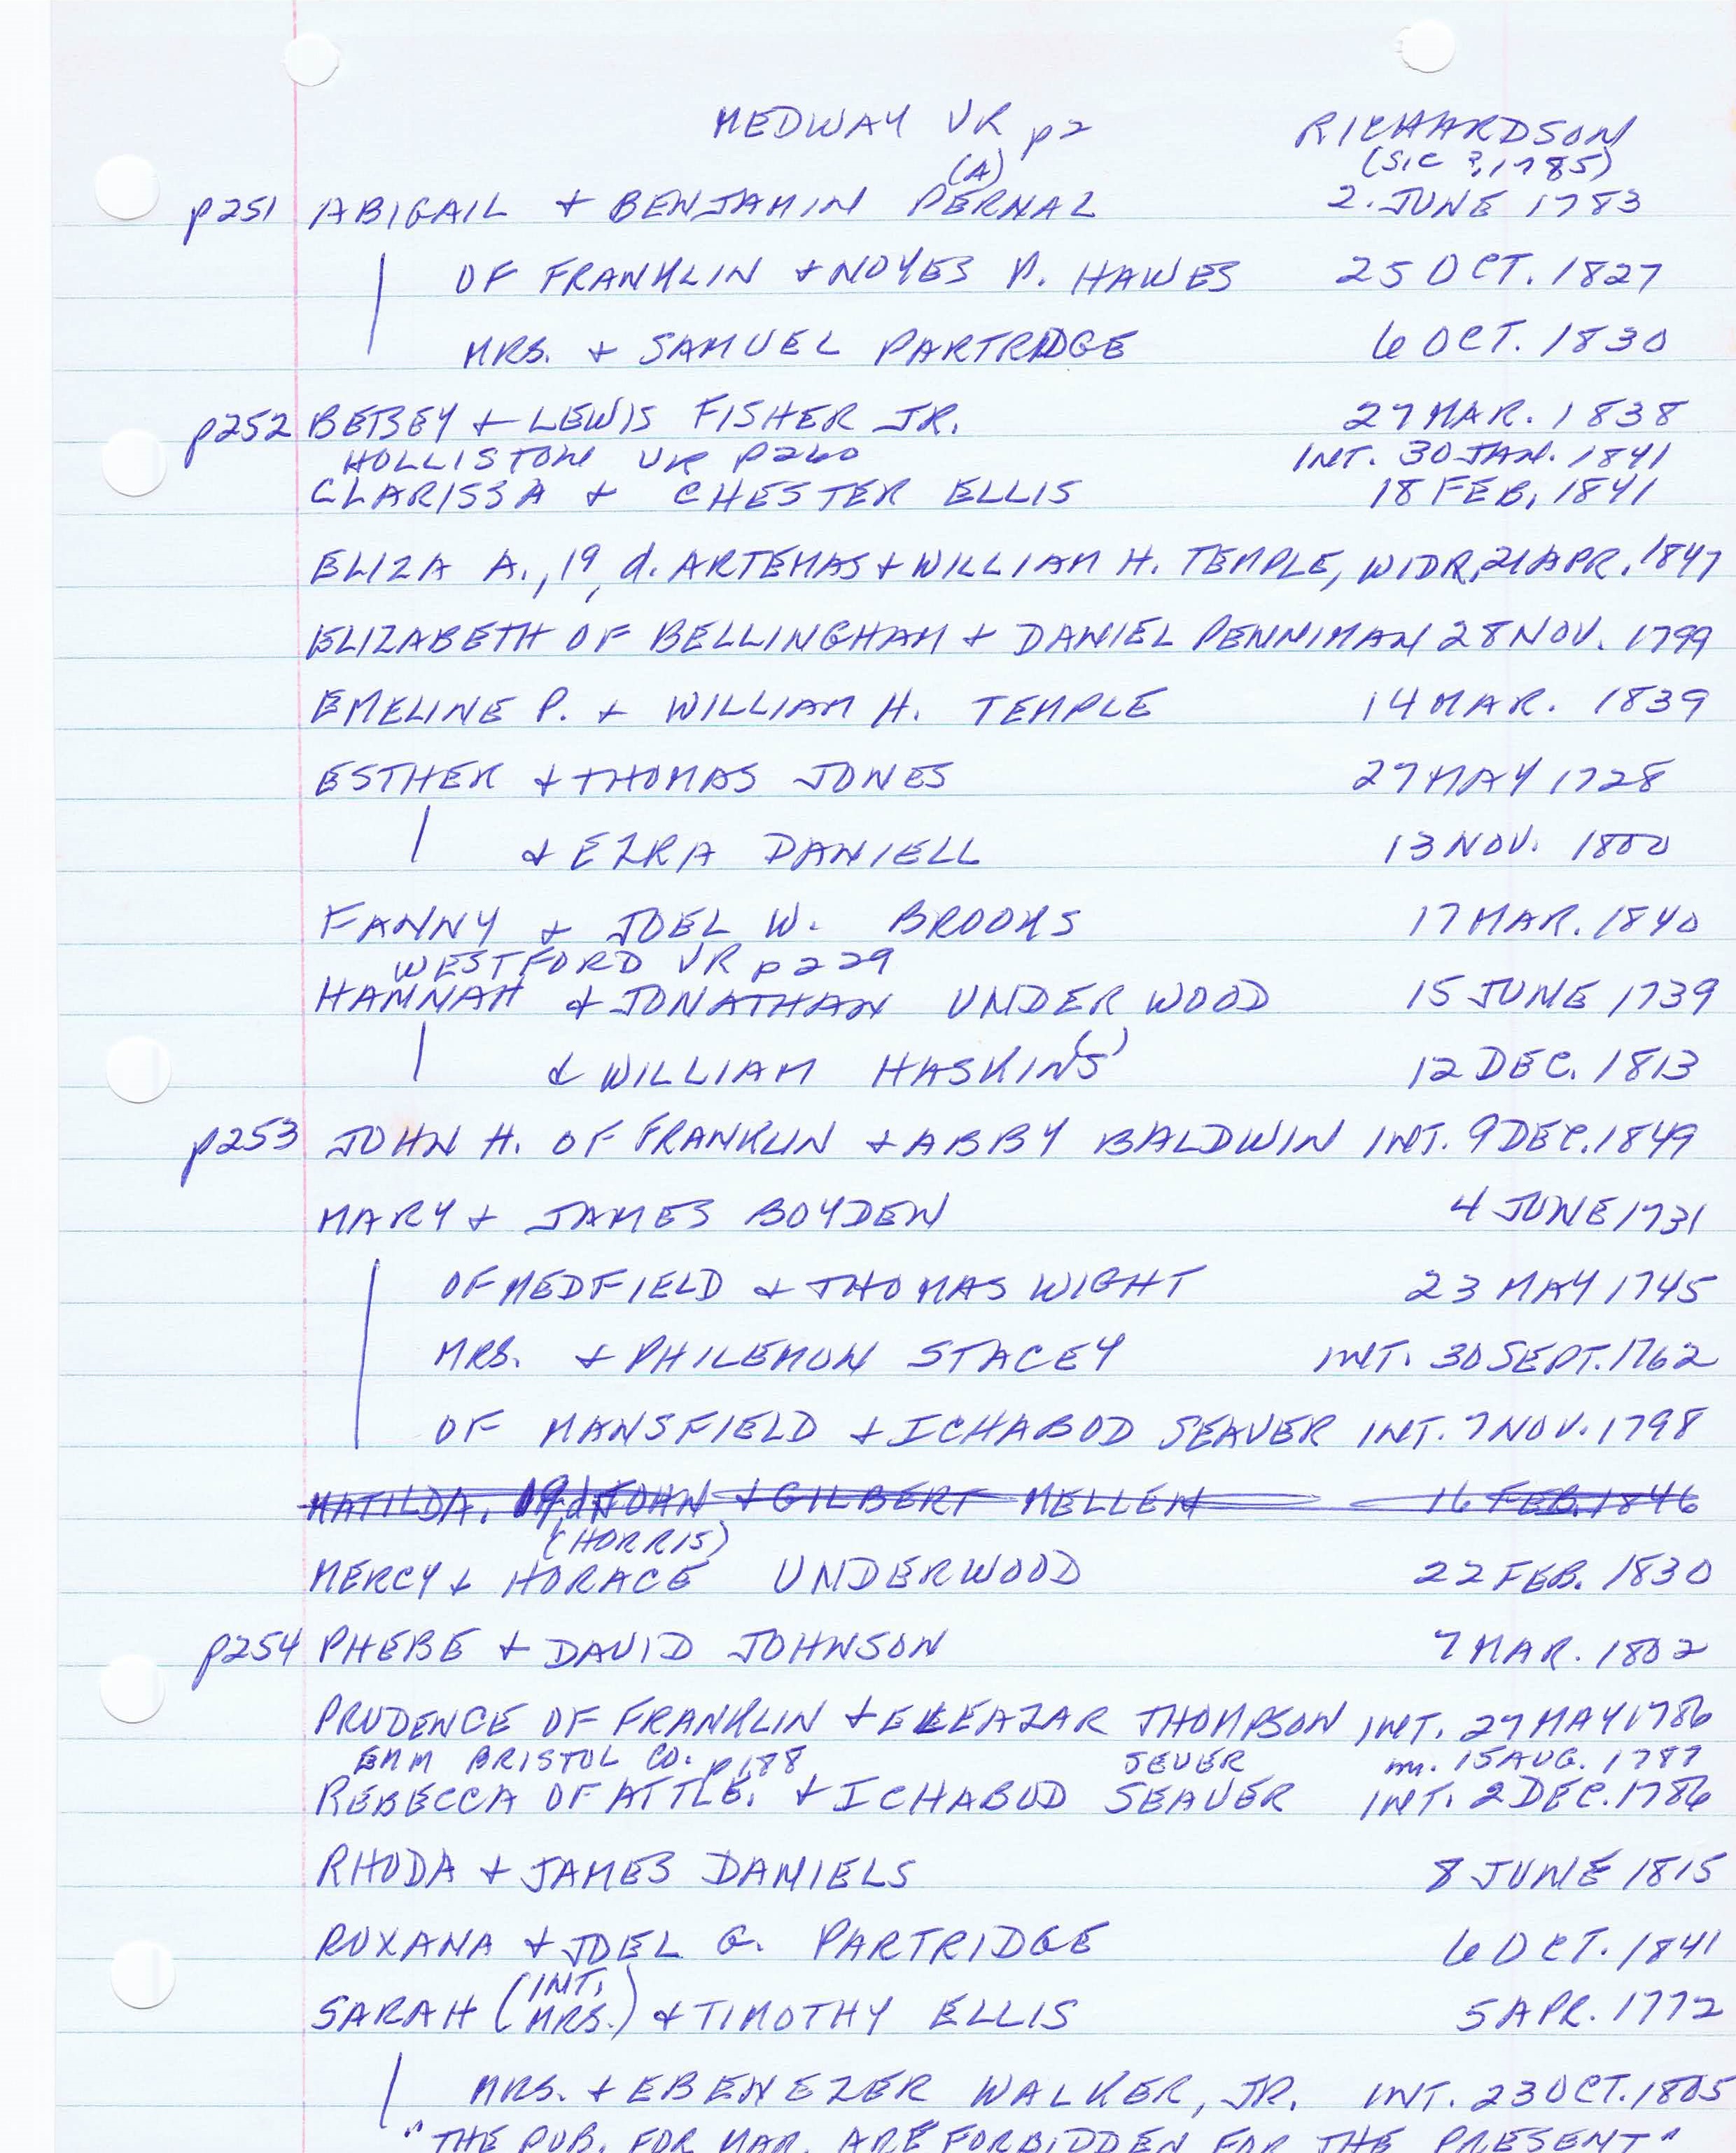 MEDWAY VR p2 RICHARDSON
(A) (SIC ?, 1785)
p251 ABIGAIL + BENJAMIN PERNAL 2. JUNE 1783
OF FRANKLIN + NOYES P. HAWES 25 OCT. 1827
MRS. + SAMUEL PARTRIDGE 6 OCT. 1830
p252 BETSEY + LEWIS FISHER JR. 27 MAR. 1838
HOLLISTON VR p260 INT. 30 JAN. 1841
CLARISSA + CHESTER ELLIS 18 FEB. 1841
ELIZA A., 19, d. ARTEMAS + WILLIAM H. TEMPLE, WIDR, 21 APR. 1847
ELIZABETH OF BELLINGHAM + DANIEL PENNIMAN 28 NOV. 1799
EMELINE P. + WILLIAM H. TEMPLE 14 MAR. 1839
ESTHER + THOMAS JONES 27 MAY 1728
+ EZRA DANIELL 13 NOV. 1800
FANNY + JOEL W. BROOKS 17 MAR. 1840
WESTFORD VR p229
HANNAH + JONATHAN UNDERWOOD 15 JUNE 1739
+ WILLIAM HASKIN(S) 12 DEC. 1813
p253 JOHN H. OF FRANKLIN + ABBY BALDWIN INT. 9 DEC. 1849
MARY + JAMES BOYDEN 4 JUNE 1731
OF MEDFIELD + THOMAS WIGHT 23 MAY 1745
MRS. + PHILEMON STACEY INT. 30 SEPT. 1762
OF MANSFIELD + ICHABOD SEAVER INT. 7 NOV. 1798
MATILDA, 19, d. JOHN + GILBERT MELLEN 16 FEB. 1846
(HORRIS)
MERCY + HORACE UNDERWOOD 22 FEB. 1830
p254 PHEBE + DAVID JOHNSON 7 MAR. 1802
PRUDENCE OF FRANKLIN + ELEAZAR THOMPSON INT. 27 MAY 1786
EMM BRISTOL CO. p188 SEVER m. 15 AUG. 1787
REBECCA OF ATTLE. + ICHABOD SEAVER INT. 2 DEC. 1786
RHODA + JAMES DANIELS 8 JUNE 1815
ROXANA + JOEL G. PARTRIDGE 6 OCT. 1841
SARAH (INT. MRS.) + TIMOTHY ELLIS 5 APR. 1772
MRS. + EBENEZER WALKER, JR. INT. 23 OCT. 1805
"THE PUB. FOR MAR. ARE FORBIDDEN FOR THE PRESENT"